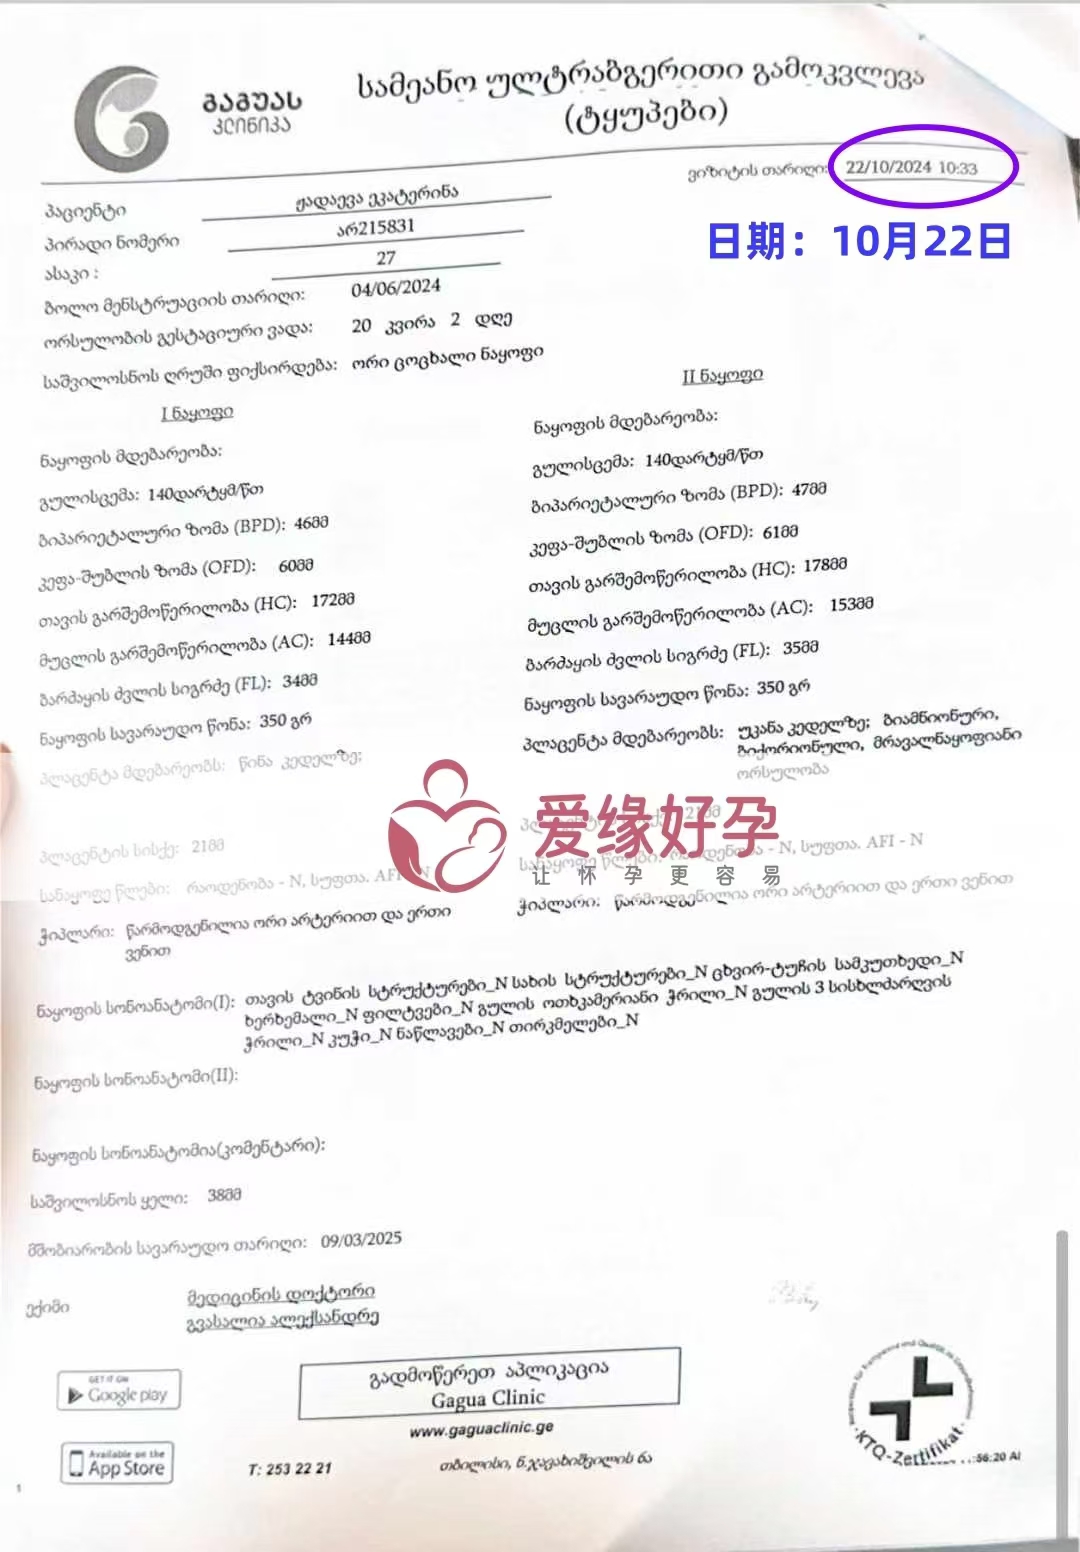 გაგუას
კლინიკა
სამეანო ულტრაბგერითი გამოკვლევა
(ტყუპები)
ვიზიტის თარიღი: 22/10/2024 10:33
日期：10月22日
პაციენტი ჟადაევა ეკატერინა
პირადი ნომერი არ215831
ასაკი : 27
ბოლო მენსტრუაციის თარიღი: 04/06/2024
ორსულობის გესტაციური ვადა: 20 კვირა 2 დღე
საშვილოსნოს ღრუში ფიქსირდება: ორი ცოცხალი ნაყოფი
I ნაყოფი
ნაყოფის მდებარეობა:
გულისცემა: 140დარტყმ/წთ
ბიპარიეტალური ზომა (BPD): 46მმ
კეფა-შუბლის ზომა (OFD): 60მმ
თავის გარშემოწერილობა (HC): 172მმ
მუცლის გარშემოწერილობა (AC): 144მმ
ბარძაყის ძვლის სიგრძე (FL): 34მმ
ნაყოფის სავარაუდო წონა: 350 გრ
პლაცენტა მდებარეობს: წინა კედელზე;
პლაცენტის სისქე: 21მმ
სანაყოფე წლები: რაოდენობა - N, სუფთა. AFI - N
ჭიპლარი: წარმოდგენილია ორი არტერიით და ერთი
ვენით
II ნაყოფი
ნაყოფის მდებარეობა:
გულისცემა: 140დარტყმ/წთ
ბიპარიეტალური ზომა (BPD): 47მმ
კეფა-შუბლის ზომა (OFD): 61მმ
თავის გარშემოწერილობა (HC): 178მმ
მუცლის გარშემოწერილობა (AC): 153მმ
ბარძაყის ძვლის სიგრძე (FL): 35მმ
ნაყოფის სავარაუდო წონა: 350 გრ
პლაცენტა მდებარეობს: უკანა კედელზე; ბიამნიონური,
ბიქორიონული, მრავალნაყოფიანი
ორსულობა
21მმ
სანაყოფე წლები: რაოდენობა - N, სუფთა. AFI - N
ჭიპლარი: წარმოდგენილია ორი არტერიით და ერთი ვენით
爱缘好孕
让怀孕更容易
ნაყოფის სონოანატომი(I): თავის ტვინის სტრუქტურები_N სახის სტრუქტურები_N ცხვირ-ტუჩის სამკუთხედი_N
ხერხემალი_N ფილტვები_N გულის ოთხკამერიანი ჭრილი_N გულის 3 სისხლძარღვის
ჭრილი_N კუჭი_N ნაწლავები_N თირკმელები_N
ნაყოფის სონოანატომი(II):
ნაყოფის სონოანატომია(კომენტარი):
საშვილოსნოს ყელი: 38მმ
მშობიარობის სავარაუდო თარიღი: 09/03/2025
ექიმი მედიცინის დოქტორი
გვასალია ალექსანდრე
GET IT ON
Google play
Available on the
App Store
გადმოწერეთ აპლიკაცია
Gagua Clinic
www.gaguaclinic.ge
T: 253 22 21
თბილისი, ნ.ჯავახიშვილის 6ა
KTQ-Zertifikat
:56:20 AI
1